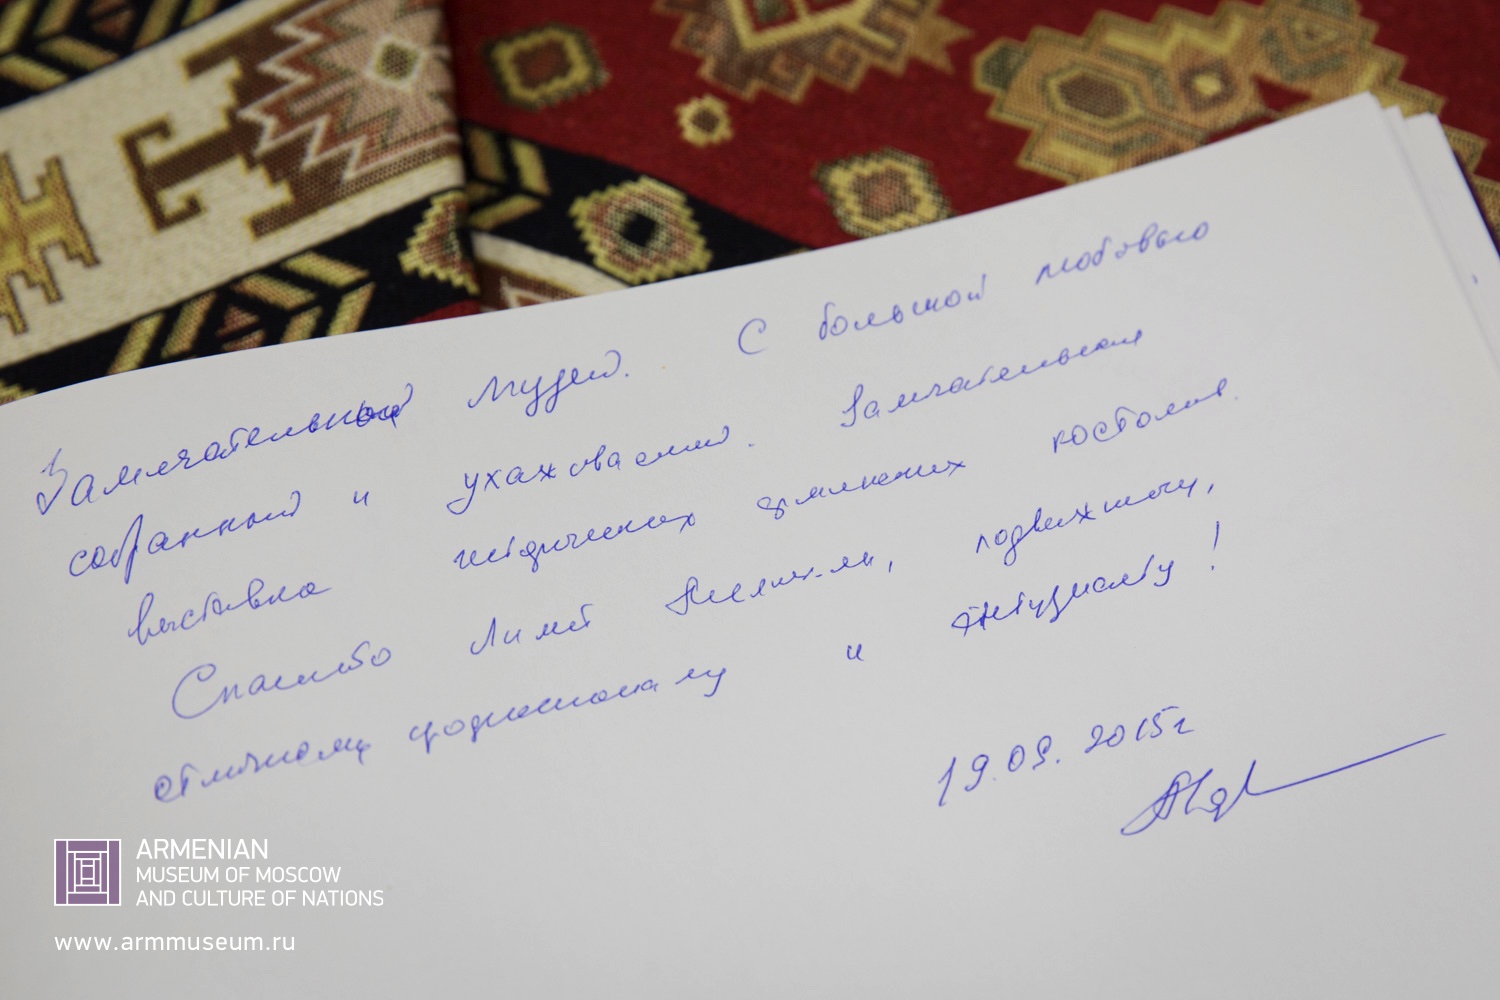 Замечательный музей. С большой любовью
собранный и ухажованный. Замечательная
выставка исторических женских костюмов.
Спасибо подвижнику,
отличному профессионалу и энтузиасту!
19.09.2015г
ARMENIAN
MUSEUM OF MOSCOW
AND CULTURE OF NATIONS
www.armmuseum.ru